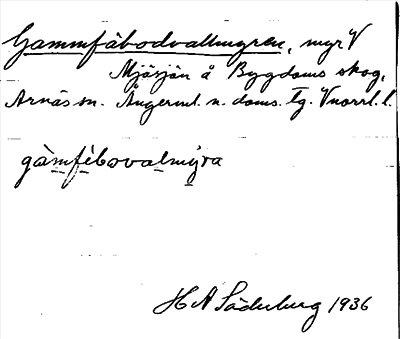 Gammfäbodvallmyren, myr V
Mjösjön å Bygdoms skog,
Arnäs sn. Ångerml. n. doms. Tg. Vnorrl. l.
gàmfèbovalmýra
H A Söderberg 1936